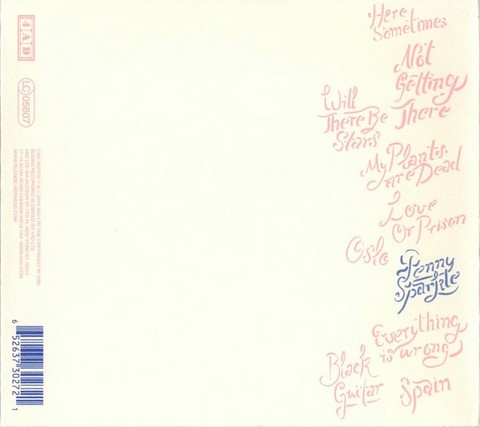 Here
Sometimes
Not
Getting
There
Will
There Be
Stars
My Plants
are Dead
Love
Or Prison
Oslo
Penny
Sparkle
Everything
is wrong
Black
Guitar
Spain
4AD
LC 05807
WWW.BLONDE-REDHEAD.COM
6 52637 30272 1